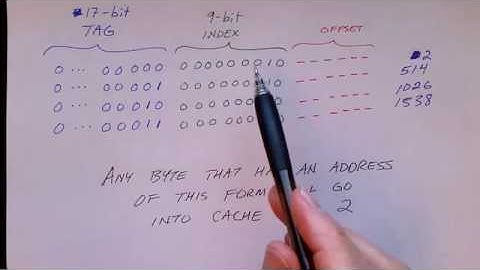 17-bit 9-bit
TAG INDEX OFFSET
0 ... 0 0 0 0 0 0 0 0 0 0 0 0 1 0 — — — — — — 2
0 ... 0 0 0 0 1 0 0 0 0 0 0 1 0 — — — — — — 514
0 ... 0 0 0 1 0 0 0 0 0 0 0 1 0 — — — — — — 1026
0 ... 0 0 0 1 1 0 0 0 0 0 0 1 0 — — — — — — 1538
ANY BYTE THAT AN ADDRESS
OF THIS GO
INTO CACHE 2